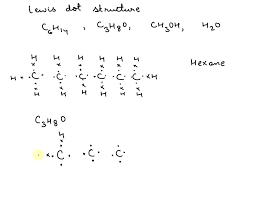 Lewis dot structure
C₆H₁₄ , C₃H₈O , CH₃OH , H₂O
H H H H H H
Hexane
H × • C • • C • • C • • C • • C • • C • × H
H H H H H H
C₃H₈O
H
• × • C • • C • • C •